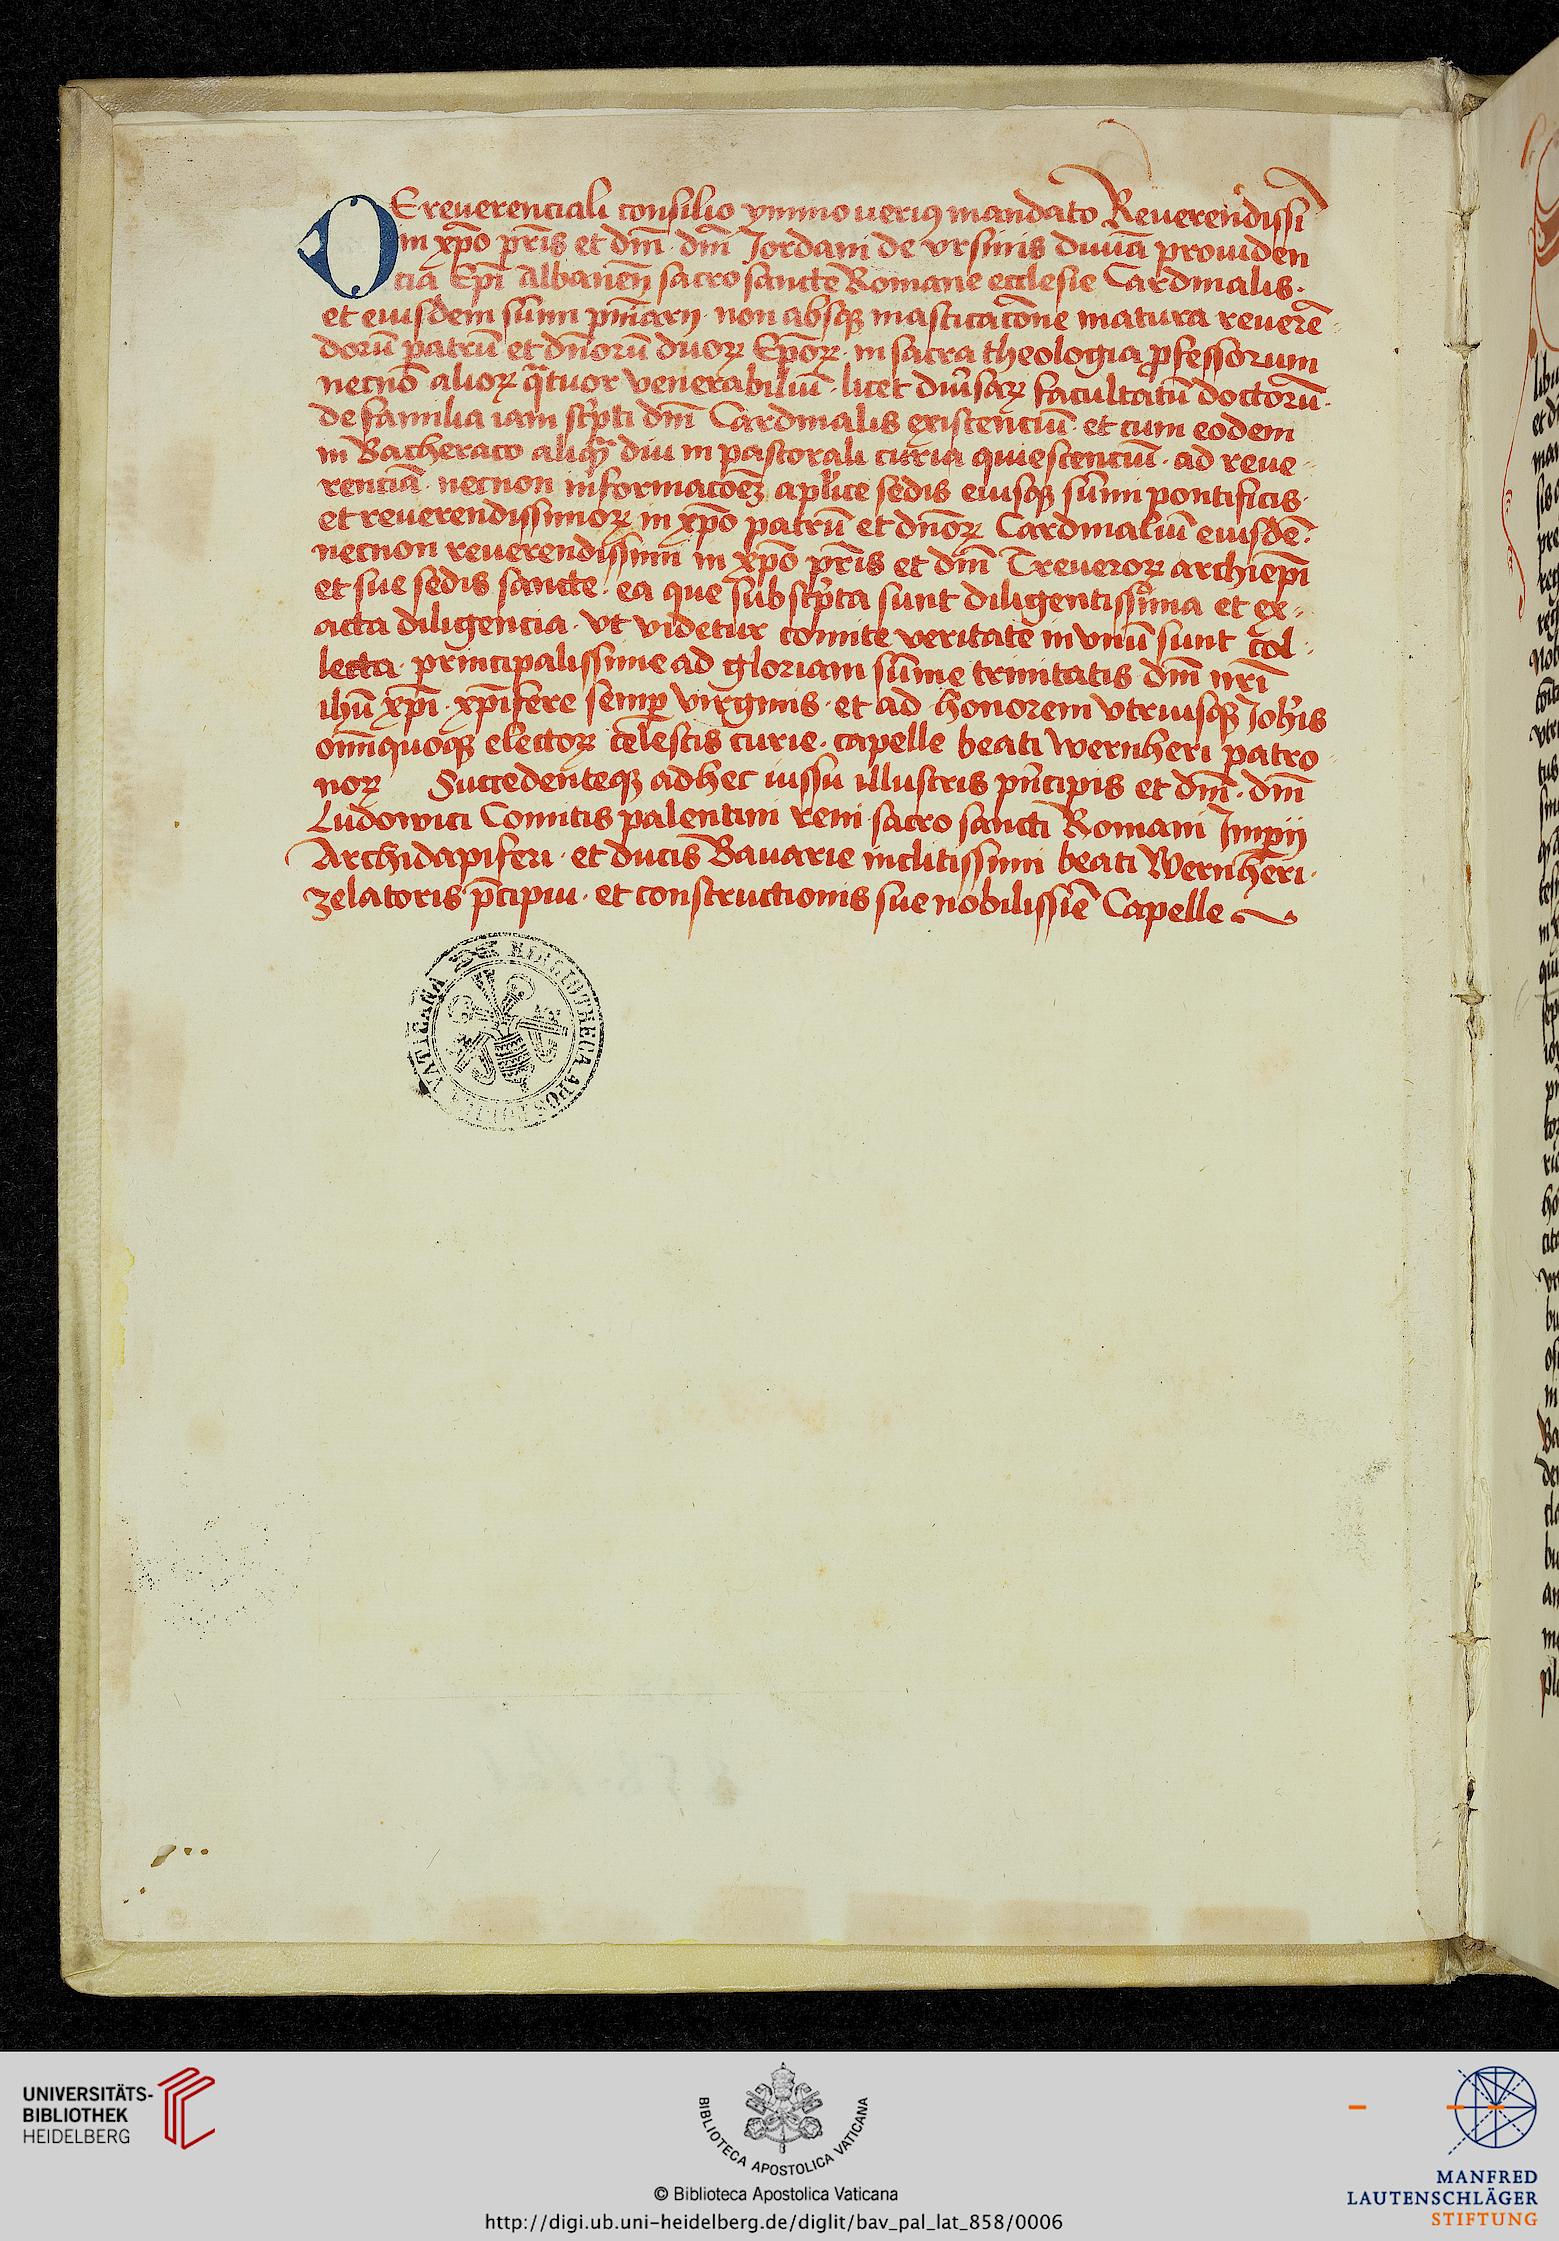 DE reuerenciali consilio ymmo uerius mandato Reuerendissi
in xp̄o pr̄is et dn̄i · dn̄i Jordani de vrsinis diuīa prouiden
cia Ep̄i Albanen̄ sacro sancte Romane ecclesie Cardinalis ·
et eiusdem sūmi pn̄iarij · non absqꝫ masticac̄one matura reuerē-
dorū patrū et dn̄orū duoꝝ Ep̄oꝝ · in sacra theologia ꝓfessorum
necnō alioꝝ qᷓtuor venerabiliū · licet diu̾saꝝ facultatū doctorū ·
de familia iam sc͛pti dn̄i Cardinalis existenciū · et cum eodem
in Bacheraco aliqᷓ diu in pastorali curia quiescenciū · ad reue-
renciā · necnon informac̄oeꝫ aplīce sedis eiusqꝫ sūmi pontificis ·
et reuerendissimoꝝ in xp̄o patrū et dn̄oꝝ Cardinaliū eiusdē ·
necnon reuerendissimi in xp̄o pr̄is et dn̄i Treueroꝝ archiep̄i
et sue sedis sancte · ea que subsc͛pta sunt diligentissīma et ex-
acta diligencia · vt videtur comite veritate in vnū sunt col-
lecta · principalissime ad gloriam sūme trinitatis dn̄i nr̄i
ihū xp̄i · xp̄ifere semꝑ virginis · et ad honorem vtriusqꝫ Joh̄is
om̄iquoqꝫ electoꝝ celestis curie · capelle beati wernheri patro-
noꝝ Succedenteqꝫ adhec iussu illustris pn̄cipis et dn̄i · dn̄i
Ludowici Comitis palentini reni · sacro sancti Romani Jmp̄ij
Archidapiferi · et ducis Bauarie inclitissimi beati Wernh̄eri ·
zelatoris p̄cipui · et constructionis sue nobilissiē Capelle
BIBLIOTHECA APOSTOLICA VATICANA
UNIVERSITÄTS-
BIBLIOTHEK
HEIDELBERG
BIBLIOTECA APOSTOLICA VATICANA
© Biblioteca Apostolica Vaticana
http://digi.ub.uni-heidelberg.de/diglit/bav_pal_lat_858/0006
MANFRED
LAUTENSCHLÄGER
STIFTUNG